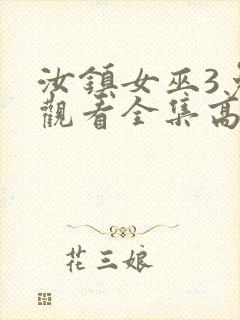 汝鎮女巫3
觀看全集高
花三娘